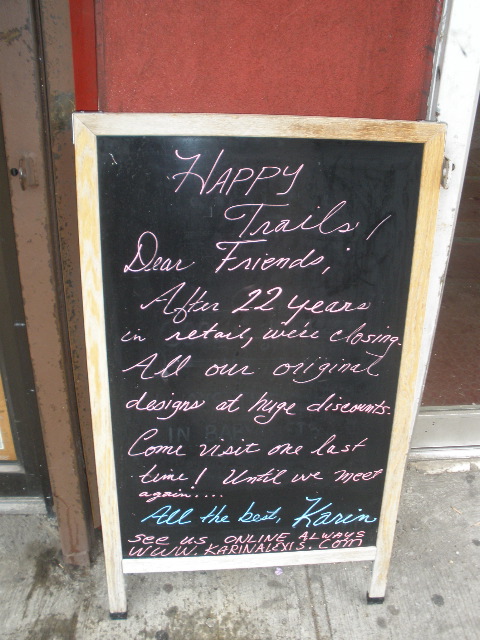 HAPPY
Trails!
Dear Friends,
After 22 years
in retail, we're closing.
All our original
designs at huge discounts.
Come visit one last
time! Until we meet
again....
All the best, Karin
see us ONLINE ALWAYS
WWW.KARINALEXIS.COM